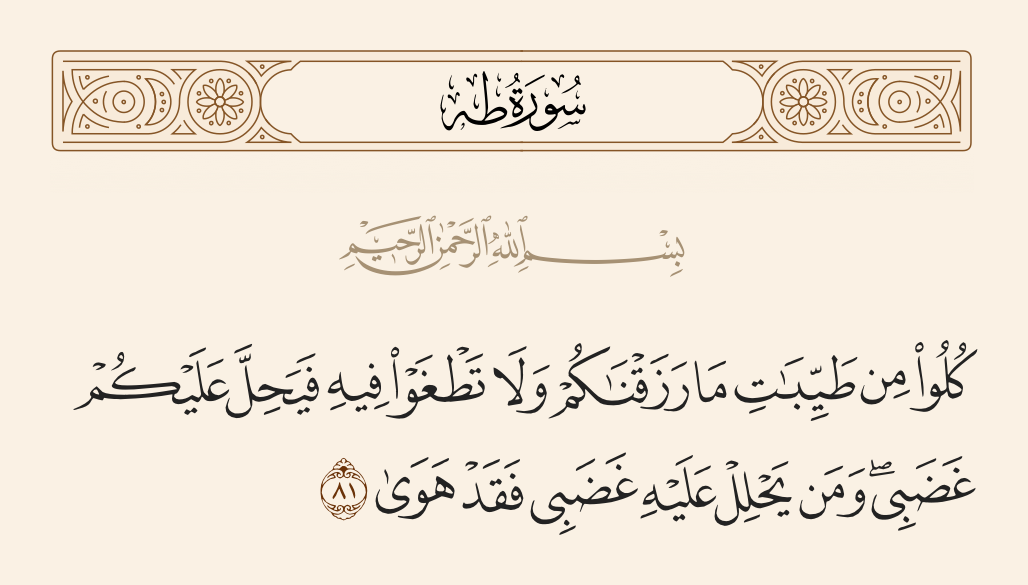 سُورَةُ طه
بِسْمِ ٱللَّهِ ٱلرَّحْمَٰنِ ٱلرَّحِيمِ
كُلُوا۟ مِن طَيِّبَـٰتِ مَا رَزَقْنَـٰكُمْ وَلَا تَطْغَوْا۟ فِيهِ فَيَحِلَّ عَلَيْكُمْ
غَضَبِى ۖ وَمَن يَحْلِلْ عَلَيْهِ غَضَبِى فَقَدْ هَوَىٰ ٨١